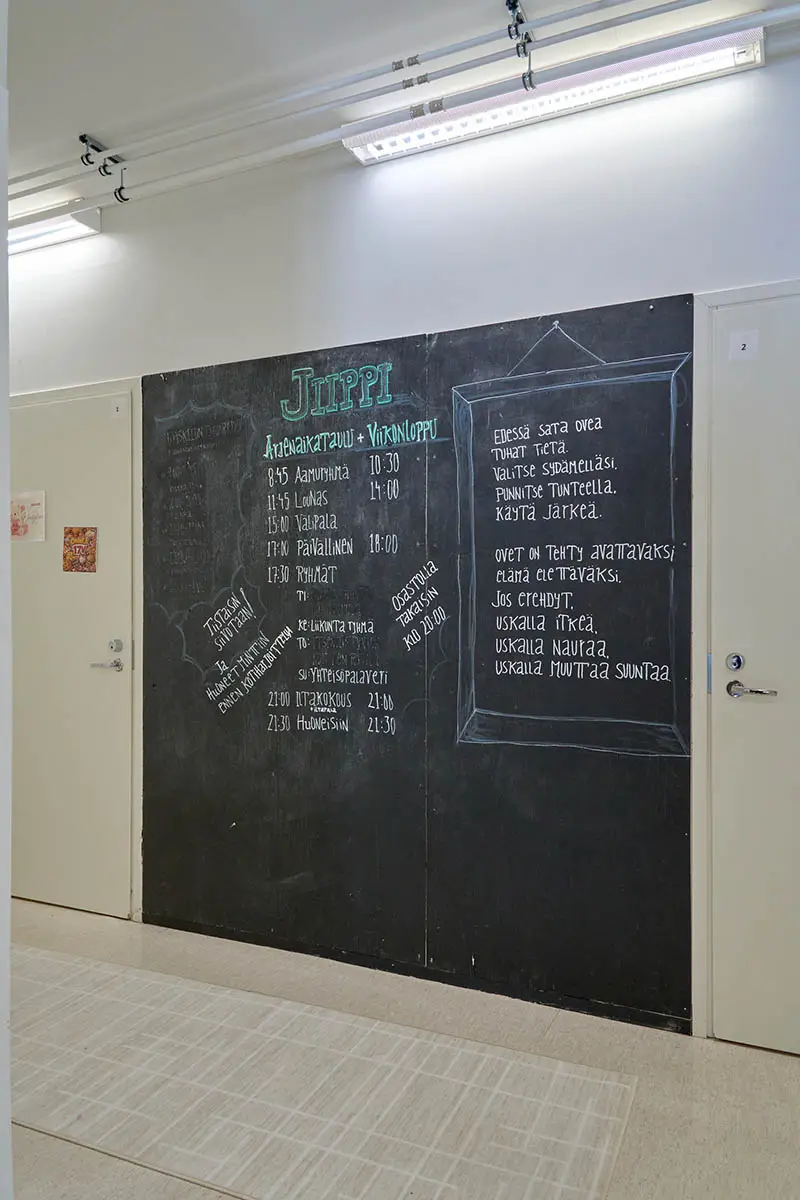 JIIPPI
Arjenaikataulu + Viikonloppu
8:45 Aamuryhmä 10:30
11:45 Lounas 14:00
15:00 Välipala
17:00 Päivällinen 18:00
17:30 Ryhmät
Ti:
Ke: Liikunta ryhmä
To:
Su: Yhteisöpalaveri
21:00 Iltakokous 21:00
+ iltapala
21:30 Huoneisiin 21:30
Tiistaisin
siivotaan!
Ja
Huoneet
ennen kotiharjoittelua
Osastolla
takaisin
klo 20:00
Edessä sata ovea
tuhat tietä.
Valitse sydämelläsi,
punnitse tunteella,
käytä järkeä.
Ovet on tehty avattavaksi
elämä elettäväksi.
Jos erehdyt,
uskalla itkeä,
uskalla nauraa,
uskalla muuttaa suuntaa
1
2